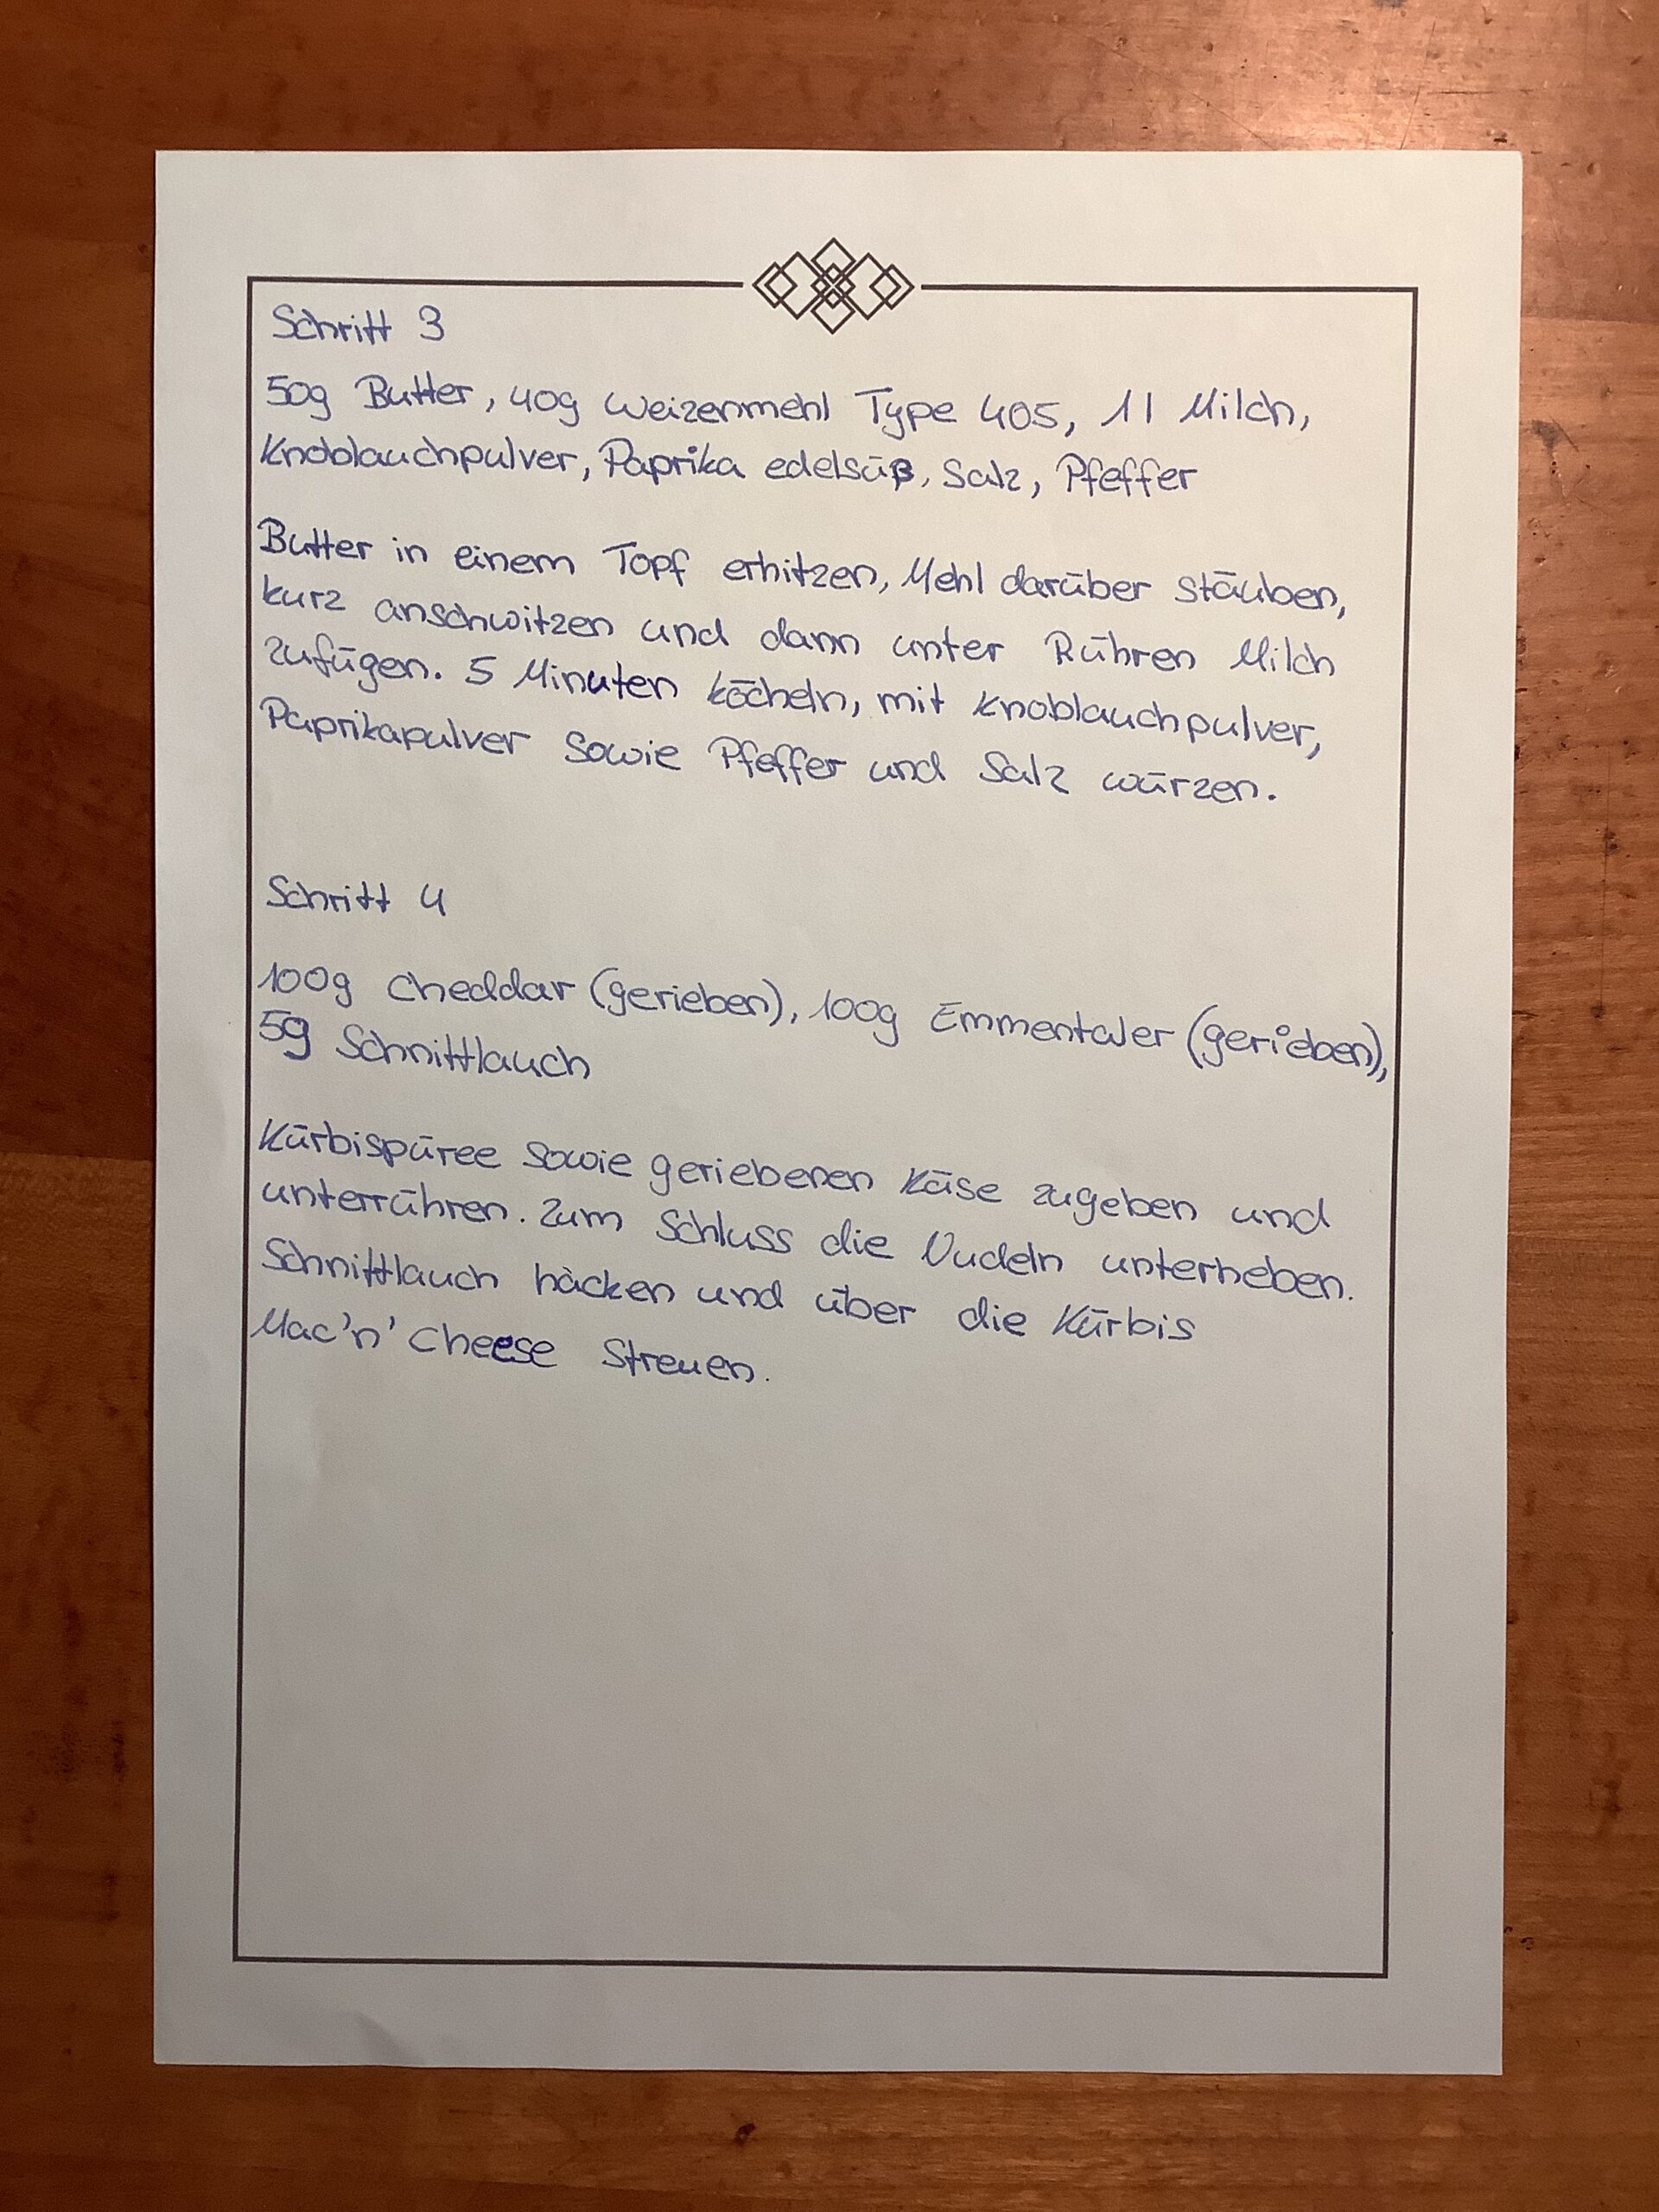 Schritt 3
50g Butter, 40g Weizenmehl Type 405, 1l Milch,
Knoblauchpulver, Paprika edelsüß, Salz, Pfeffer
Butter in einem Topf erhitzen, Mehl darüber stäuben,
kurz anschwitzen und dann unter Rühren Milch
zufügen. 5 Minuten köcheln, mit Knoblauchpulver,
Paprikapulver sowie Pfeffer und Salz würzen.
Schritt 4
100g Cheddar (gerieben), 100g Emmentaler (gerieben),
5g Schnittlauch
Kürbispüree sowie geriebenen Käse zugeben und
unterrühren. Zum Schluss die Nudeln unterheben.
Schnittlauch hacken und über die Kürbis
Mac'n' Cheese streuen.